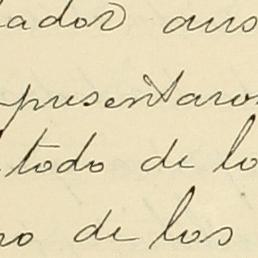 lador aus
presentaro
todo de lo
ro de los